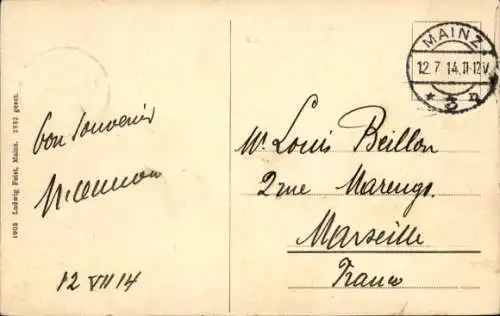 MAINZ
12.7 14.11-12V
* 2 n
Bon souvenir
12 VII 14
Mr. Louis Beillon
2 rue Marengo.
Marseille
France
1903 Ludwig Feist, Mainz. 2552 gesch.